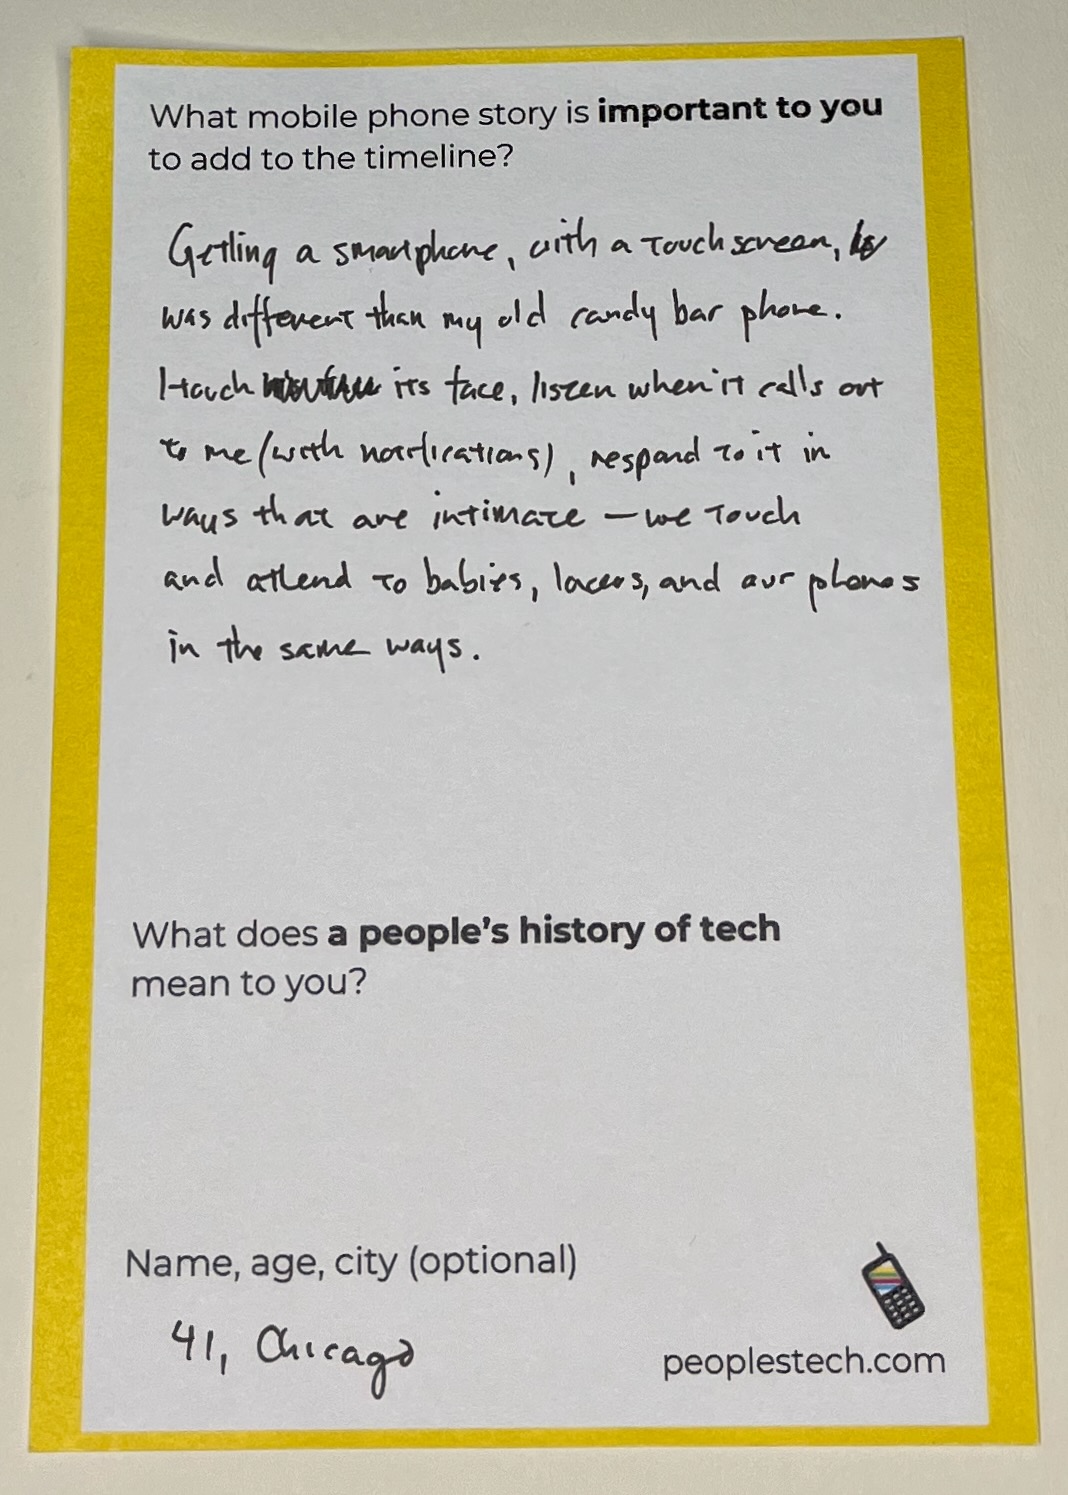 What mobile phone story is important to you
to add to the timeline?
Getting a smartphone, with a touch screen,
was different than my old candy bar phone.
I touch its face, listen when it calls out
to me (with notifications), respond to it in
ways that are intimate – we touch
and attend to babies, lovers, and our phones
in the same ways.
What does a people's history of tech
mean to you?
Name, age, city (optional)
41, Chicago
peoplestech.com